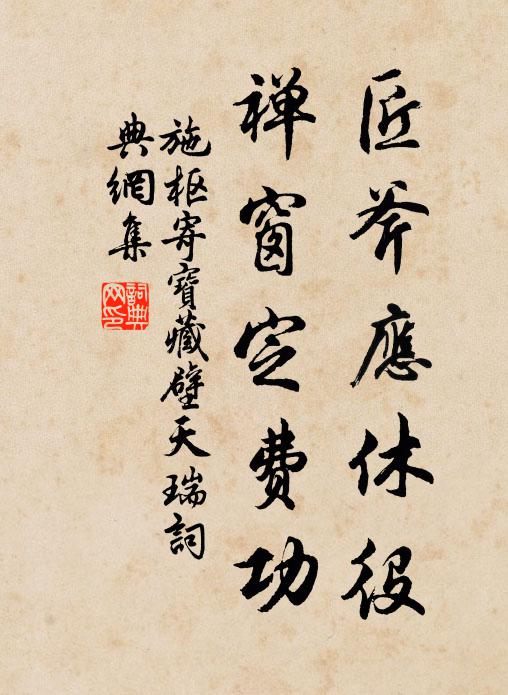 匠斧應休役
禪窗定費功
施枢寄寶藏壁天瑞詞
典網集
詞典
网印